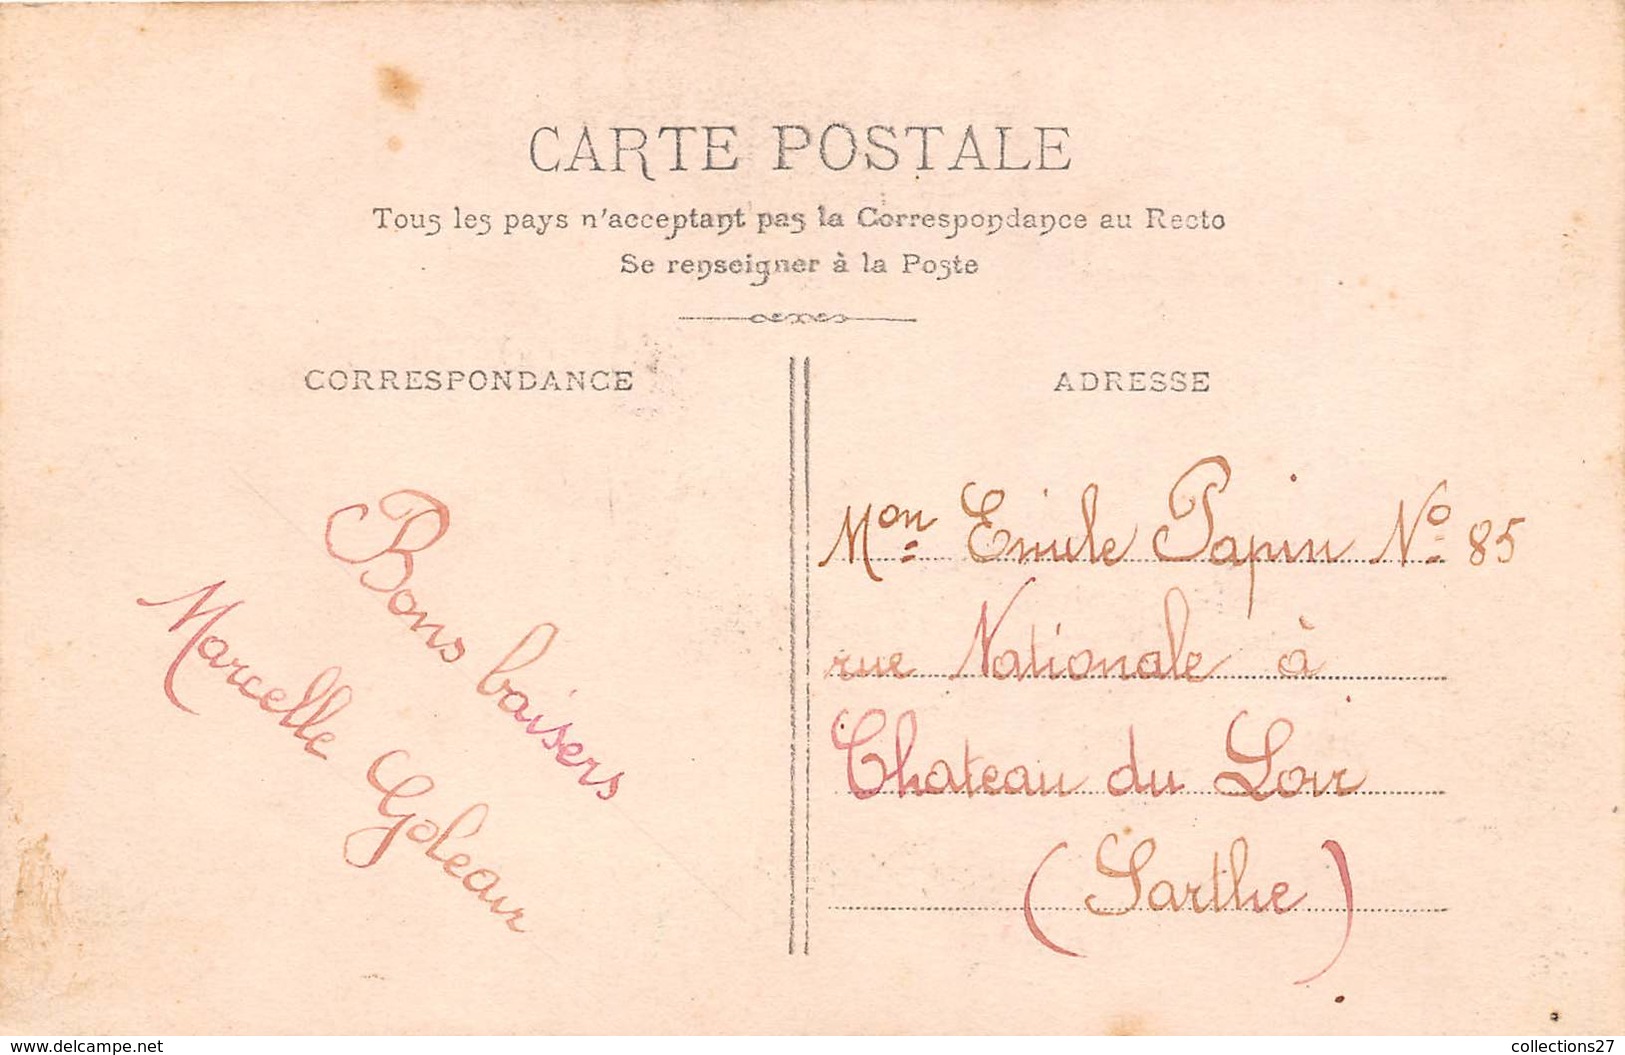 CARTE POSTALE
Tous les pays n'acceptant pas la Correspondance au Recto
Se renseigner à la Poste
CORRESPONDANCE
ADRESSE
Bons baisers
Marcelle
Mon Emile Papin No 85
rue Nationale à
Chateau du Loir
(Sarthe)
www.delcampe.net
collections27